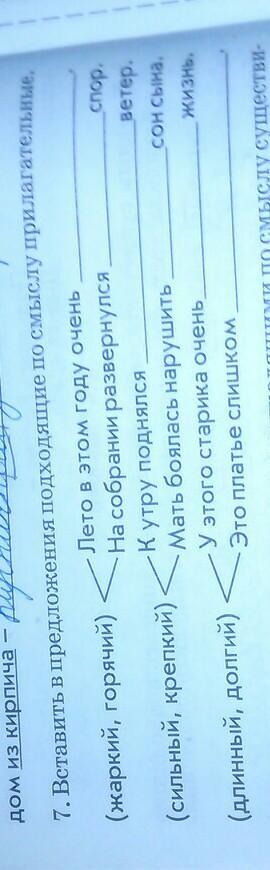 дом из кирпича –
7. Вставить в предложения подходящие по смыслу прилагательные.
(жаркий, горячий) Лето в этом году очень ________,
На собрании развернулся ________ спор.
(сильный, крепкий) К утру поднялся ________ ветер.
Мать боялась нарушить ________ сон сына.
(длинный, долгий) У этого старика очень ________ жизнь.
Это платье слишком ________,
по смыслу существи-